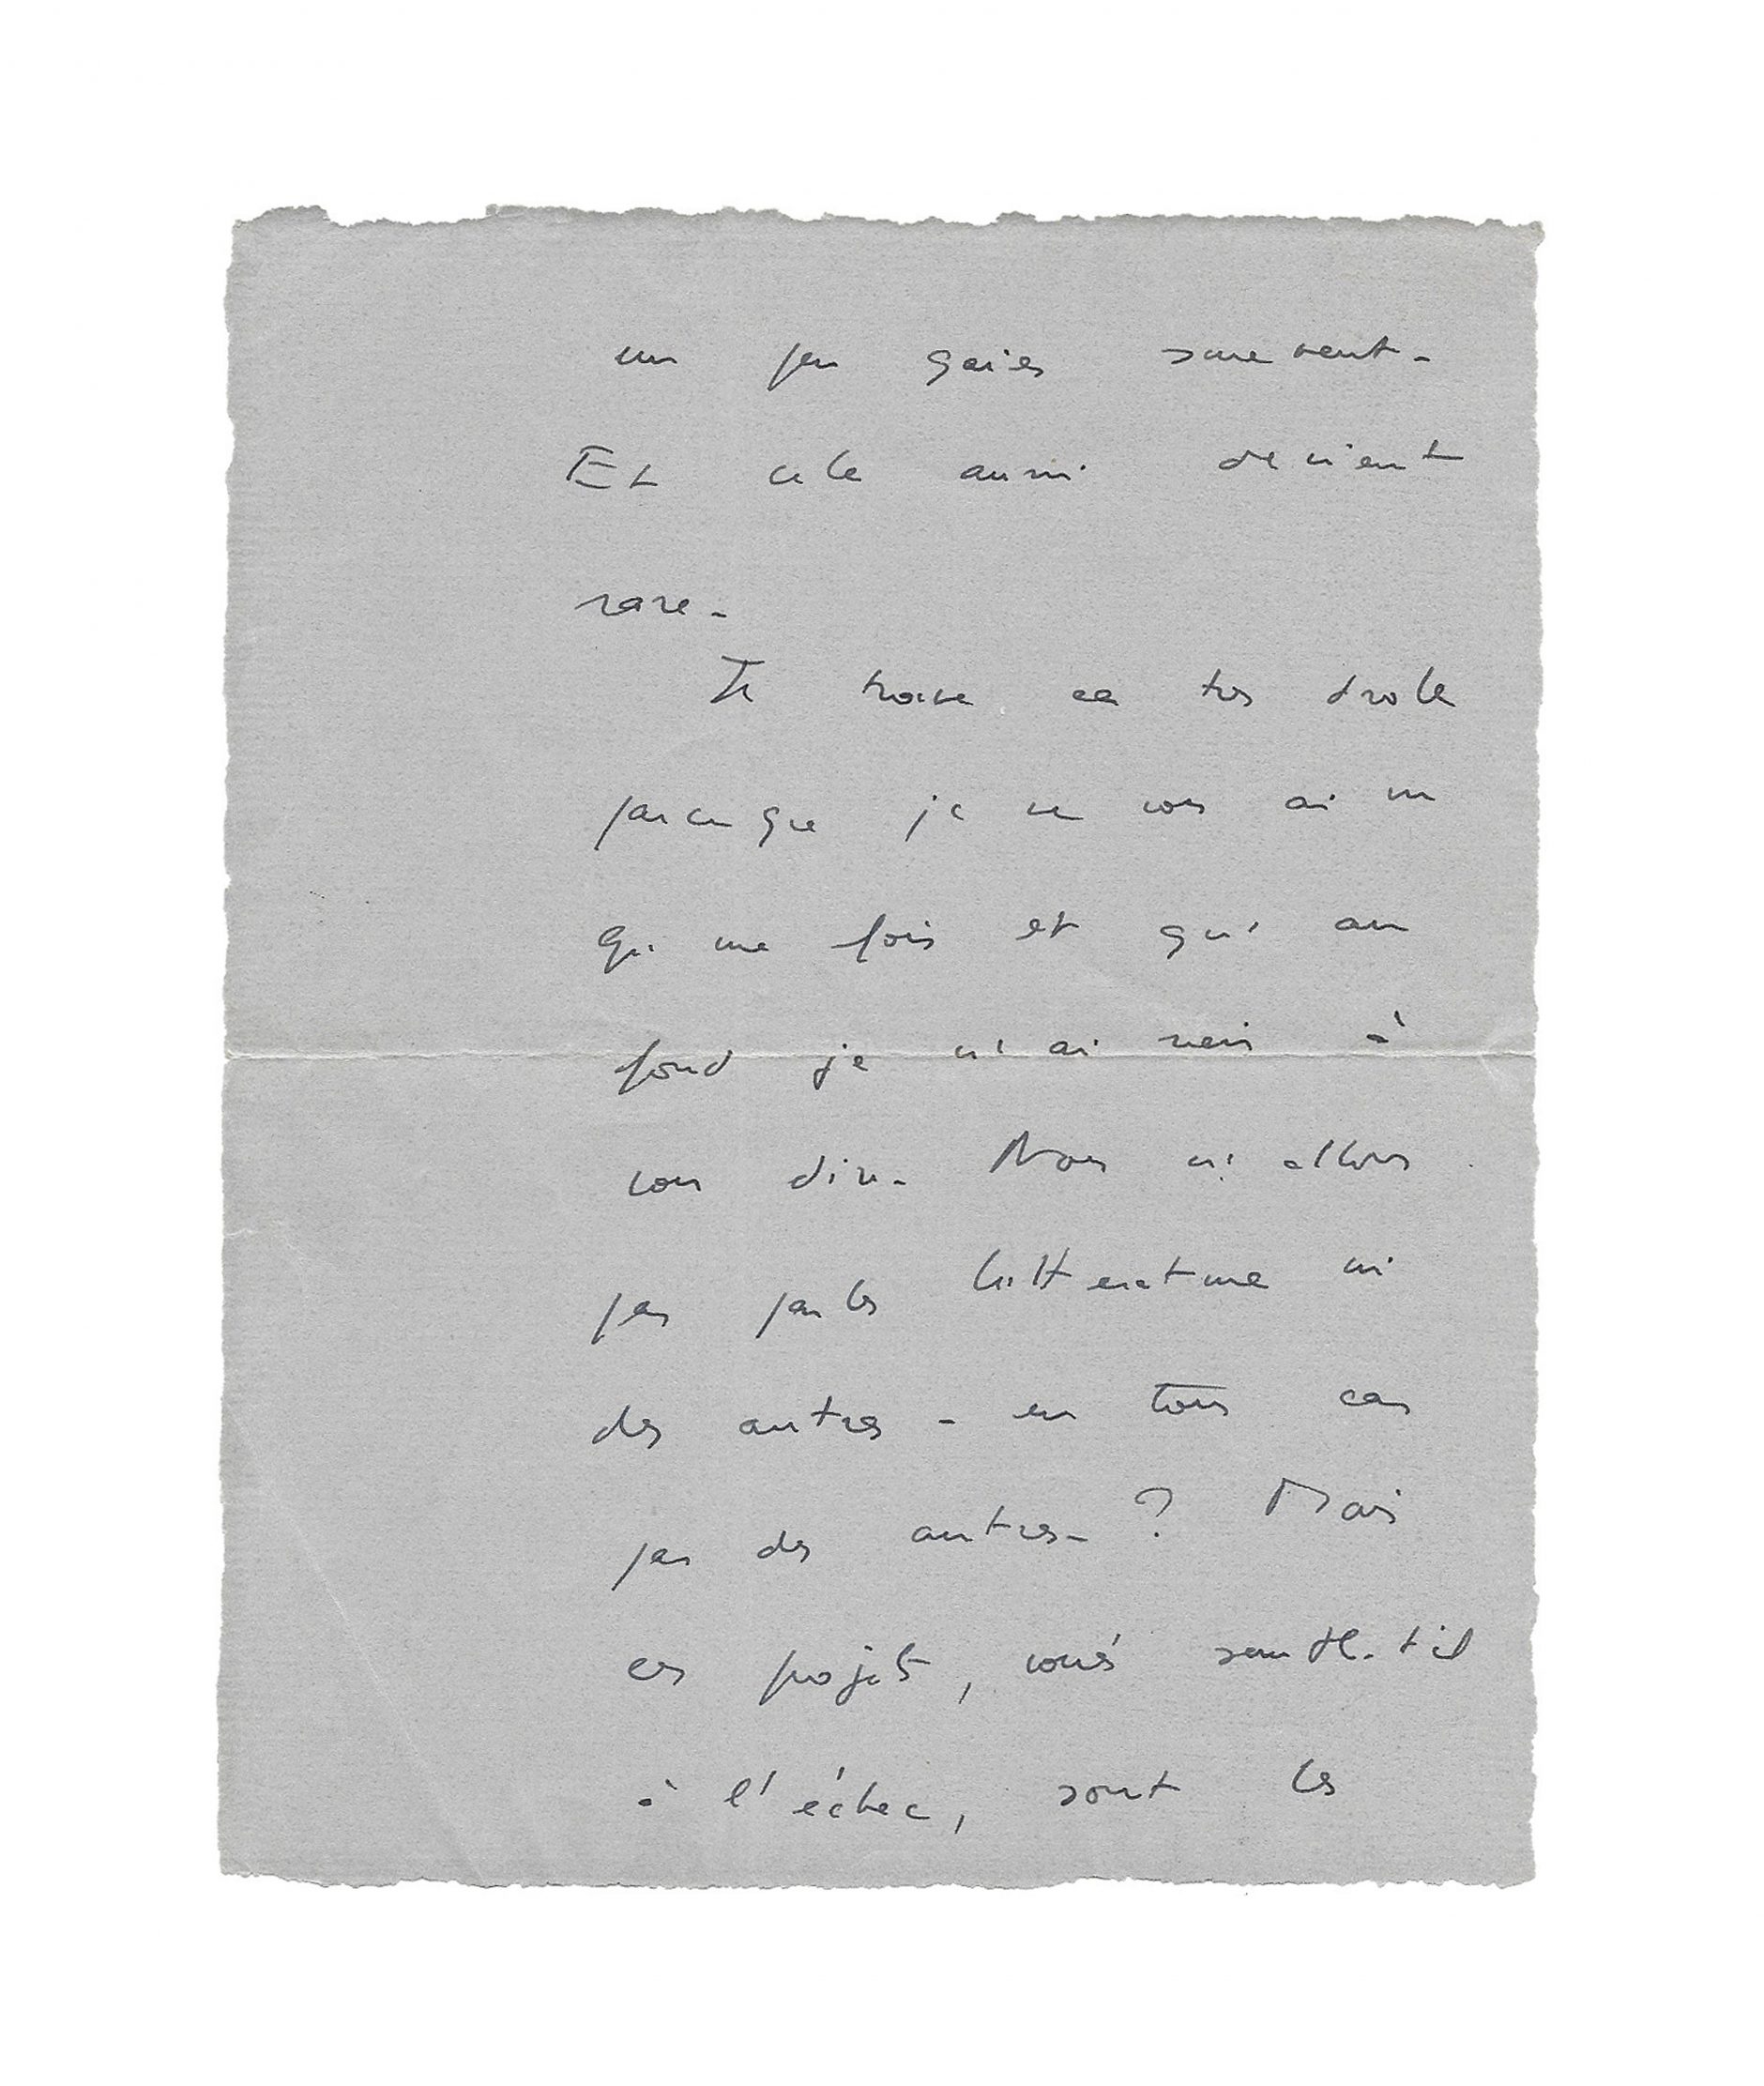 un peu gaies souvent.
Et cela aussi devient
rare.
Je trouve ça très drole
parce que je ne vous ai vu
qu'une fois et qu'au
fond je n'ai rien à
vous dire. Nous n'allons
pas parler littérature ni
des autres - en tous cas
pas des autres - ? Mais
ces projets, voués semble-t-il
à l'échec, sont les